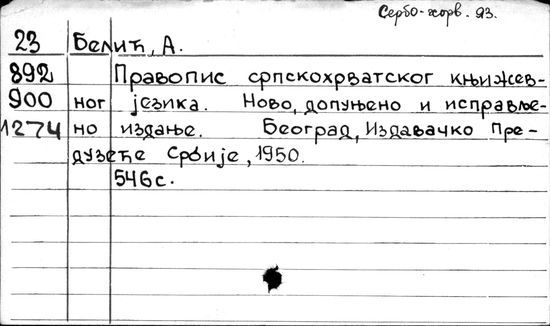 Сербо-хорв. яз.
23 Белић, А.
892 Правопис српскохрватског књижев-
900 ног језика. Ново, допуњено и исправље-
1274 но издање. Београд, Издавачко Пре-
дузеће Србије, 1950.
546 с.